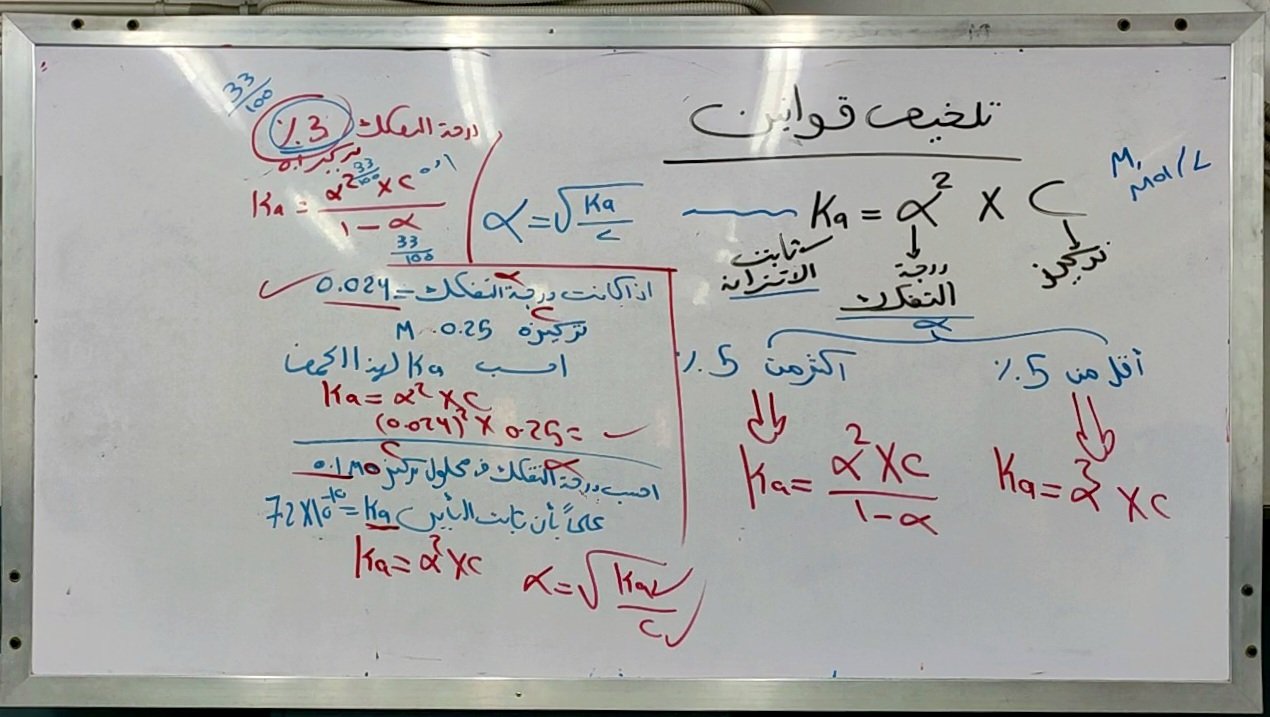 تلخيص قوانين
M, mol/L
Ka = α² X C
ثابت الاتزان
درجة التفكك
تركيز
α
أقل من 5 ٪
أكثر من 5 ٪
Ka = α² X C
Ka = α² X C / 1 - α
33/100
درجة التفكك 3 ٪
تركيز 0.1
Ka = α² 33/100 X C 0.1 / 1 - α
33/100
α = √Ka/C
α C
اذا كانت درجة التفكك = 0.024
تركيزه 0.25 M
احسب Ka لهذا الحمض
Ka = α² X C
(0.024)² X 0.25 =
احسب درجة التفكك في محلول تركيز 0.1 M
α C
علماً بأن ثابت التأين Ka = 7.2 X 10⁻¹⁰
Ka = α² X C
α = √Ka/C